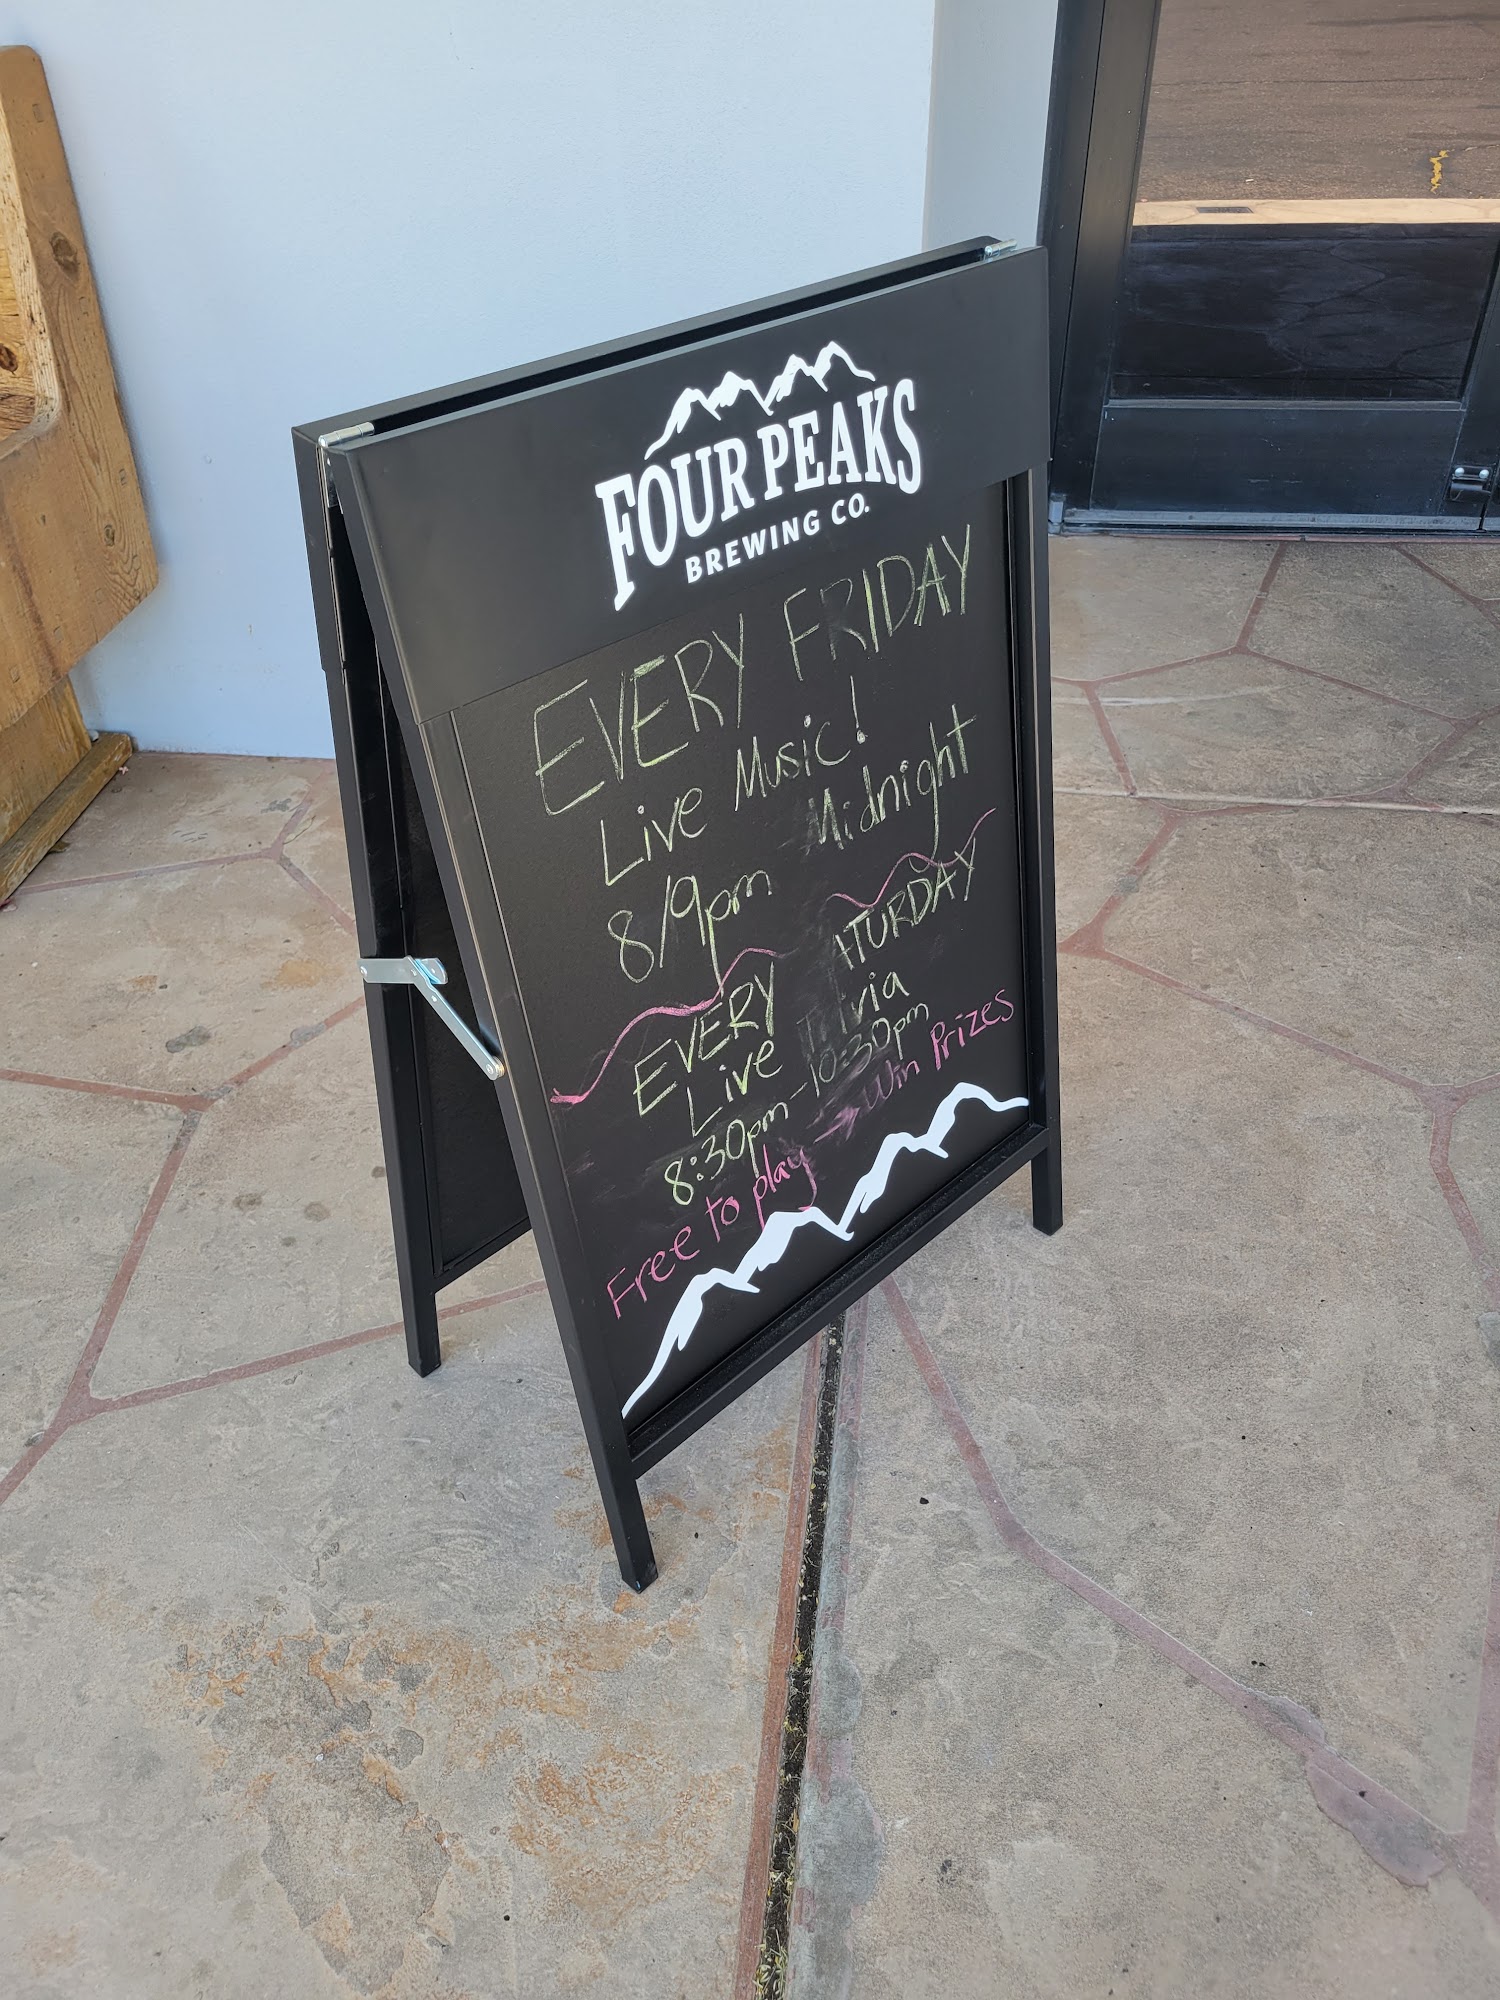 FOUR PEAKS
BREWING CO.
EVERY FRIDAY
Live Music!
8/9pm Midnight
EVERY ATURDAY
Live Trivia
8:30pm-10:30pm
Free to play → Win Prizes